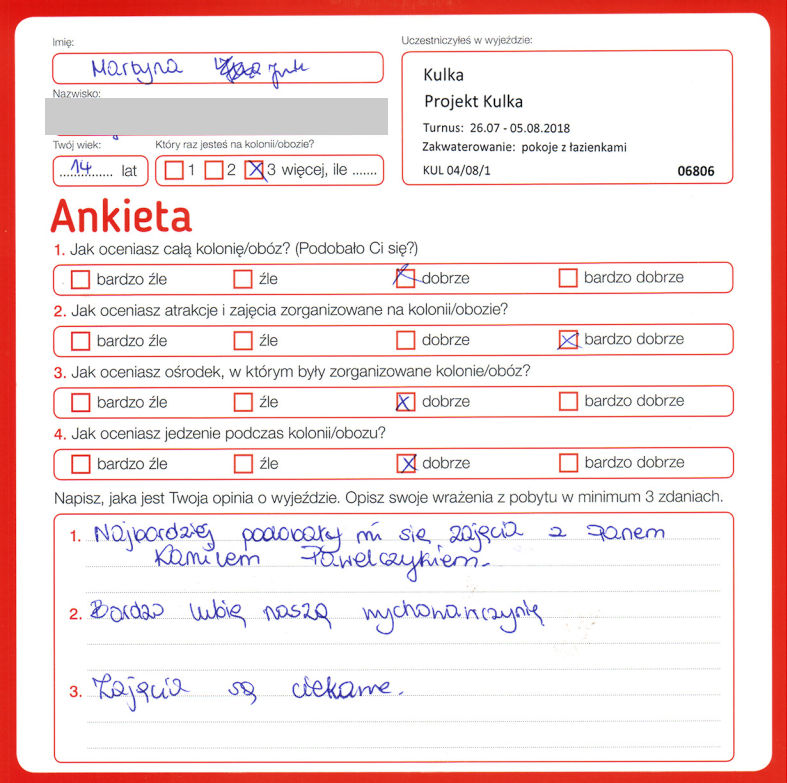 Imię:
Martyna
Nazwisko:
Twój wiek:
14 lat
Który raz jesteś na kolonii/obozie?
1 2 3 więcej, ile .......
Uczestniczyłeś w wyjeździe:
Kulka
Projekt Kulka
Turnus: 26.07 - 05.08.2018
Zakwaterowanie: pokoje z łazienkami
KUL 04/08/1 06806
Ankieta
1. Jak oceniasz całą kolonię/obóz? (Podobało Ci się?)
bardzo źle źle dobrze bardzo dobrze
2. Jak oceniasz atrakcje i zajęcia zorganizowane na kolonii/obozie?
bardzo źle źle dobrze bardzo dobrze
3. Jak oceniasz ośrodek, w którym były zorganizowane kolonie/obóz?
bardzo źle źle dobrze bardzo dobrze
4. Jak oceniasz jedzenie podczas kolonii/obozu?
bardzo źle źle dobrze bardzo dobrze
Napisz, jaka jest Twoja opinia o wyjeździe. Opisz swoje wrażenia z pobytu w minimum 3 zdaniach.
1. Najbardziej podobały mi się zajęcia z Panem
Kamilem Pawelczykiem.
2. Bardzo lubię naszą wychowawczynię
3. Zajęcia są ciekawe.